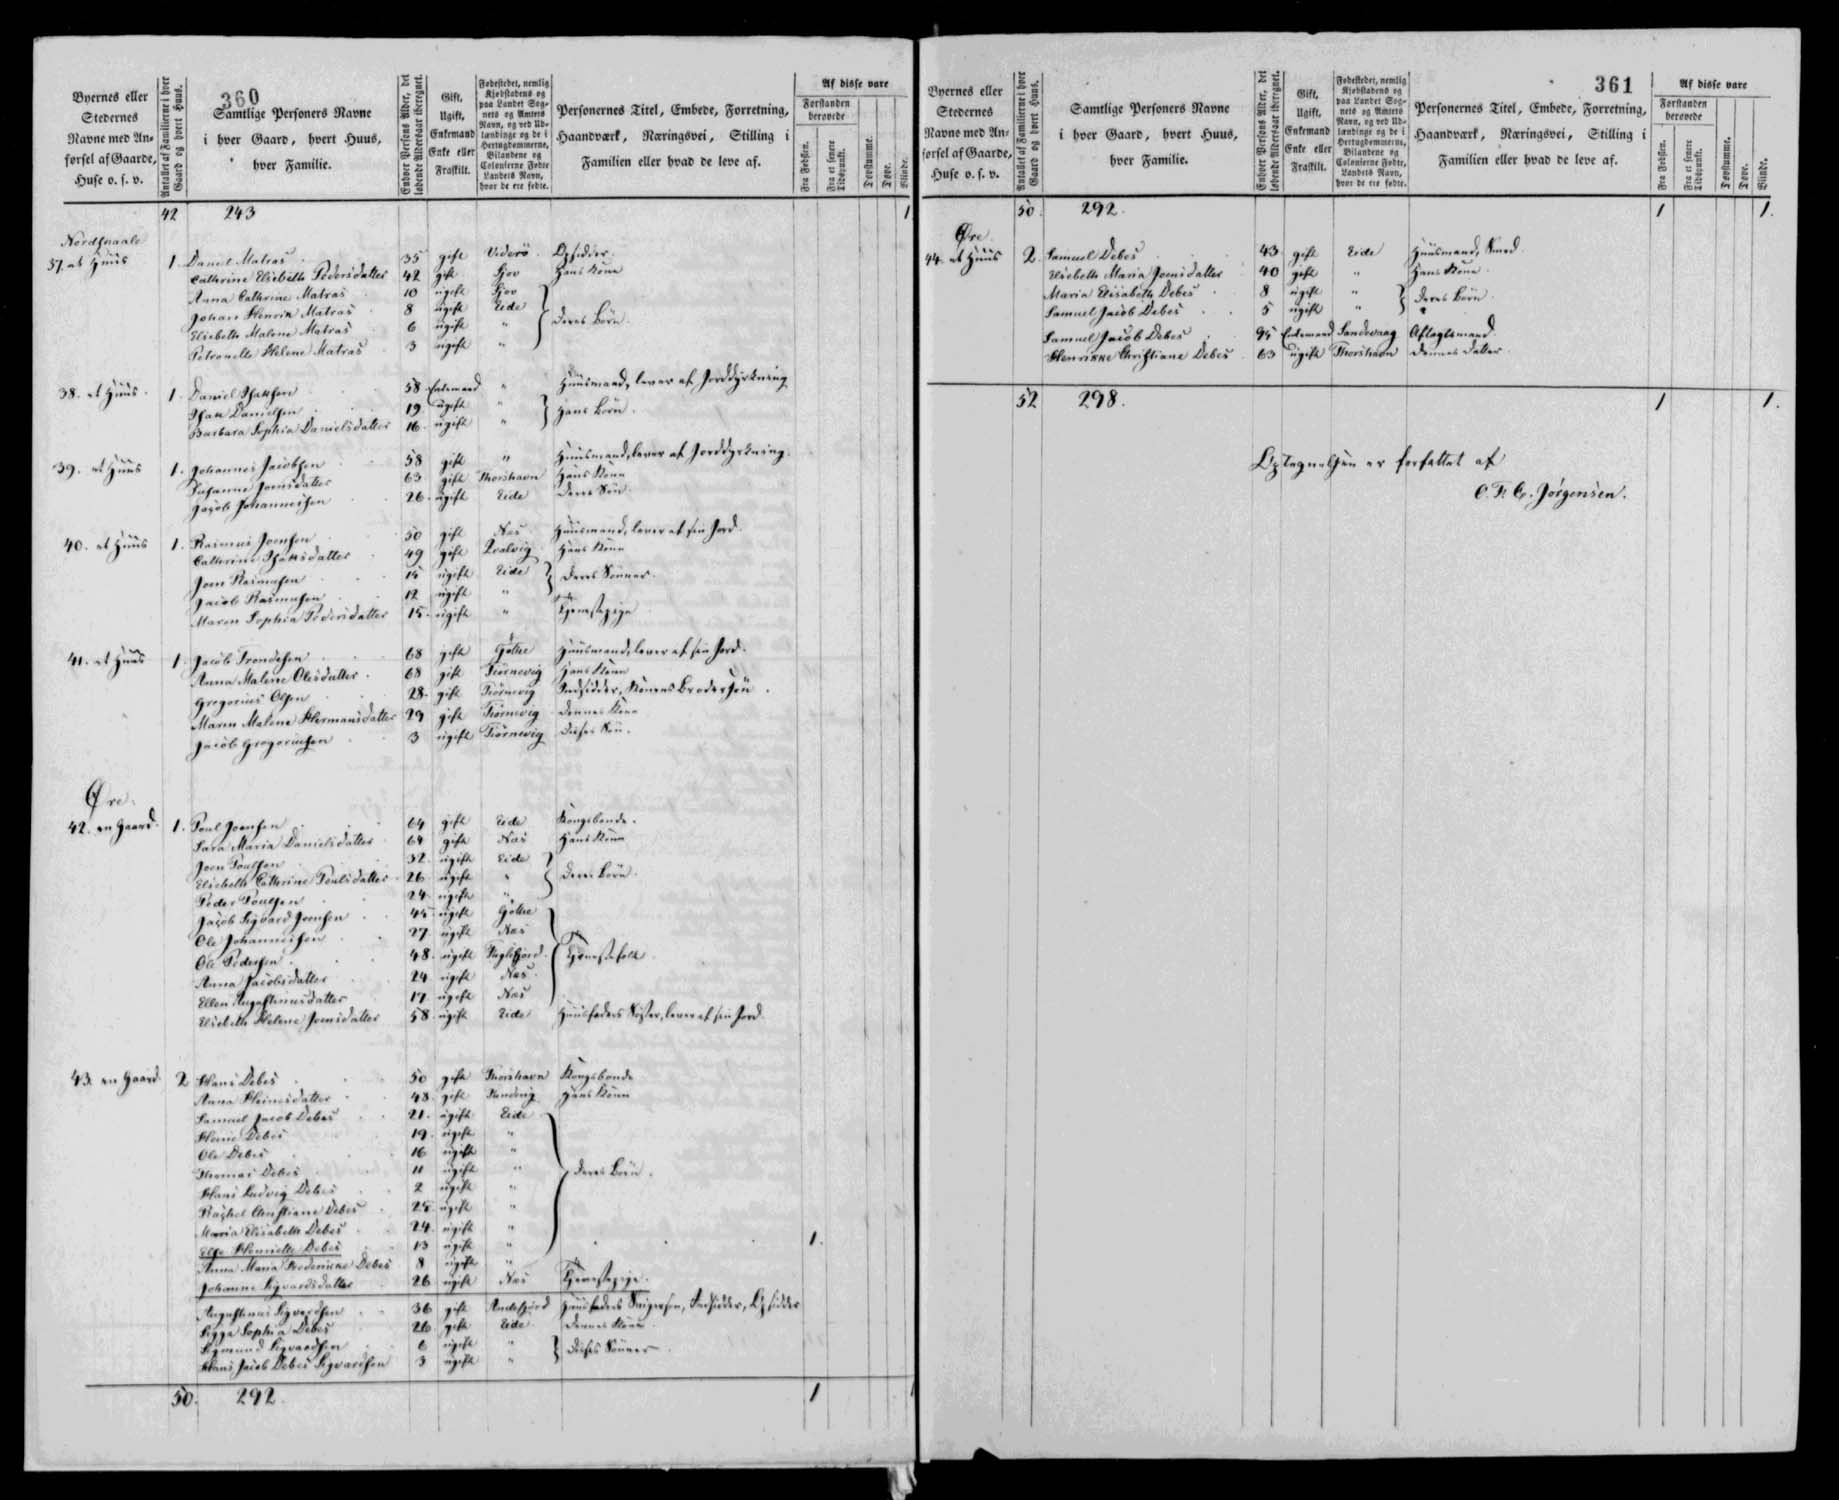 360
Byernes eller
Stedernes
Navne med An-
førsel af Gaarde,
Huse o. s. v.
Antallet af Familierne i hver
Gaard og hvert Huus.
Samtlige Personers Navne
i hver Gaard, hvert Huus,
hver Familie.
Enhver Persons Alder, det
løbende Aldersaar iberegnet.
Gift,
Ugift,
Enkemand
Enke eller
Fraskilt.
Fødestedet, nemlig
Kjøbstadens og
paa Landet Sog-
nets og Amtets
Navn, og ved Ud-
lændinge og de i
Hertugdømmerne,
Bilandene og
Colonierne Fødte
Landets Navn,
hvor de ere fødte.
Personernes Titel, Embede, Forretning,
Haandværk, Næringsvei, Stilling i
Familien eller hvad de leve af.
Af disse vare
Forstanden
berøvede
Fra Fødslen.
Fra et senere
Tidspunkt.
Døvstumme.
Døve.
Blinde.
42 243 1
37. et Huus 1. Daniel Matras 35 gift Viderö
Cathrine Elisbeth Pedersdatter 42 gift Gjov Hans Kone
Anna Cathrine Matras 10 ugift Gjov
Johan Henrik Matras 8 ugift Eide
Elisbeth Malene Matras 6 ugift " Deres Börn.
Petronelle Helene Matras 3 ugift "
38. et Huus. 1. Daniel Isaksen 58 Enkemand " Huusmand, lever af Jorddyrkning
Isak Danielsen 19. ugift " Hans Börn.
Barbara Sophia Danielsdatter 16. ugift "
39. et Huus 1. Johannes Jacobsen 58 gift " Huusmand, lever af Jorddyrkning.
Susanne Joensdatter 63 gift Thorshavn Hans Kone
Jacob Johannesen 26. ugift Eide Deres Sön.
40. et Huus 1. Rasmus Joensen 50 gift Næs Huusmand, lever af sin Jord.
Cathrine Isaksdatter 49 gift Qvalvig Hans Kone
Joen Rasmusen 15 ugift Eide Deres Sönner.
Jacob Rasmusen 12 ugift "
Maren Sophia Pedersdatter 15. ugift " Tjenestepige
41. et Huus 1. Jacob Trondesen 68 gift Göthe Huusmand, lever af sin Jord.
Anna Malene Olesdatter. 68 gift Tiörnevig Hans Kone
Gregorius Olsen 28. gift Tiörnevig Indsidder, Konens Brodersön.
Maren Malene Hermansdatter 29 gift Tiörnevig Dennes Kone
Jacob Gregoriusen 3 ugift Tiörnevig Disses Sön.
Øre.
42. en Gaard. 1. Poul Joensen 64 gift Eide Kongsbonde.
Sara Maria Danielsdatter 64 gift Næs Hans Kone
Joen Poulsen 32. ugift Eide
Elisbeth Cathrine Poulsdatter 26 ugift " Deres Börn.
Peder Poulsen 24 ugift "
Jacob Sigvard Joensen 45 ugift Göthe
Ole Johannesen 27 ugift Næs
Ole Pedersen 48. ugift Fuglefjord Tjenestefolk.
Anna Jacobsdatter 24 ugift Næs
Ellen Augustinusdatter 17 ugift Næs
Elsebeth Helene Joensdatter 58 ugift Eide Huusfaders Söster, lever af sin Jord.
43. en Gaard 2 Hans Debes 50 gift Thorshavn Kongsbonde
Anna Heinesdatter 48. gift Funding Hans Kone
Samuel Jacob Debes 21. ugift Eide
Heine Debes 19. ugift "
Ole Debes 16 ugift "
Thomas Debes 11 ugift " Deres Börn.
Hans Ludvig Debes 2 ugift "
Rachel Christiane Debes 25 ugift "
Maria Elisabeth Debes 24 ugift "
Else Henriette Debes 13 ugift " 1.
Anna Maria Frederikke Debes 8 ugift "
Johanne Sigvardsdatter 26 ugift Næs Tjenestepige.
Augustinus Sigvardsen 36 gift Andefjord Huusfaders Svigersön, Indsidder,
Sigga Sophia Debes 26 gift Eide Dennes Kone
Sigmund Sigvardsen 6 ugift " Disses Sönner
Hans Jacob Debes Sigvardsen 3 ugift "
50. 292. 1
361
Byernes eller
Stedernes
Navne med An-
førsel af Gaarde,
Huse o. s. v.
Antallet af Familierne i hver
Gaard og hvert Huus.
Samtlige Personers Navne
i hver Gaard, hvert Huus,
hver Familie.
Enhver Persons Alder, det
løbende Aldersaar iberegnet.
Gift,
Ugift,
Enkemand
Enke eller
Fraskilt.
Fødestedet, nemlig
Kjøbstadens og
paa Landet Sog-
nets og Amtets
Navn, og ved Ud-
lændinge og de i
Hertugdømmerne,
Bilandene og
Colonierne Fødte,
Landets Navn,
hvor de ere fødte.
Personernes Titel, Embede, Forretning,
Haandværk, Næringsvei, Stilling i
Familien eller hvad de leve af.
Af disse vare
Forstanden
berøvede
Fra Fødslen.
Fra et senere
Tidspunkt.
Døvstumme.
Døve.
Blinde.
50. 292. 1 1.
Øre.
44. et Huus 2. Samuel Debes 43 gift Eide Huusmand, Smed.
Elisbeth Maria Joensdatter 40 gift " Hans Kone.
Maria Elisabeth Debes 8 ugift " Deres Börn.
Samuel Jacob Debes 5 ugift "
Samuel Jacob Debes 95 Enkemand Sandevaag Aftægtsmand.
Henrikke Christiane Debes 63 ugift Thorshavn Dennes Datter.
52 298. 1 1.
Optegnelsen er forfattet af
C. F. C. Jørgensen.